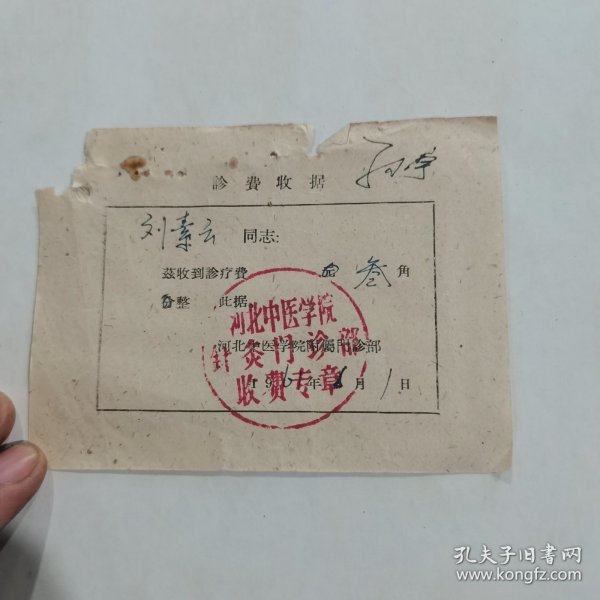 診費收据
刘素云 同志:
茲收到診疗費 叁 角
整 此据
河北中医学院附屬門診部
196 年 月 1 日
河北中医学院
針灸门诊部
收費专章
孔夫子旧书网
www.kongfz.com